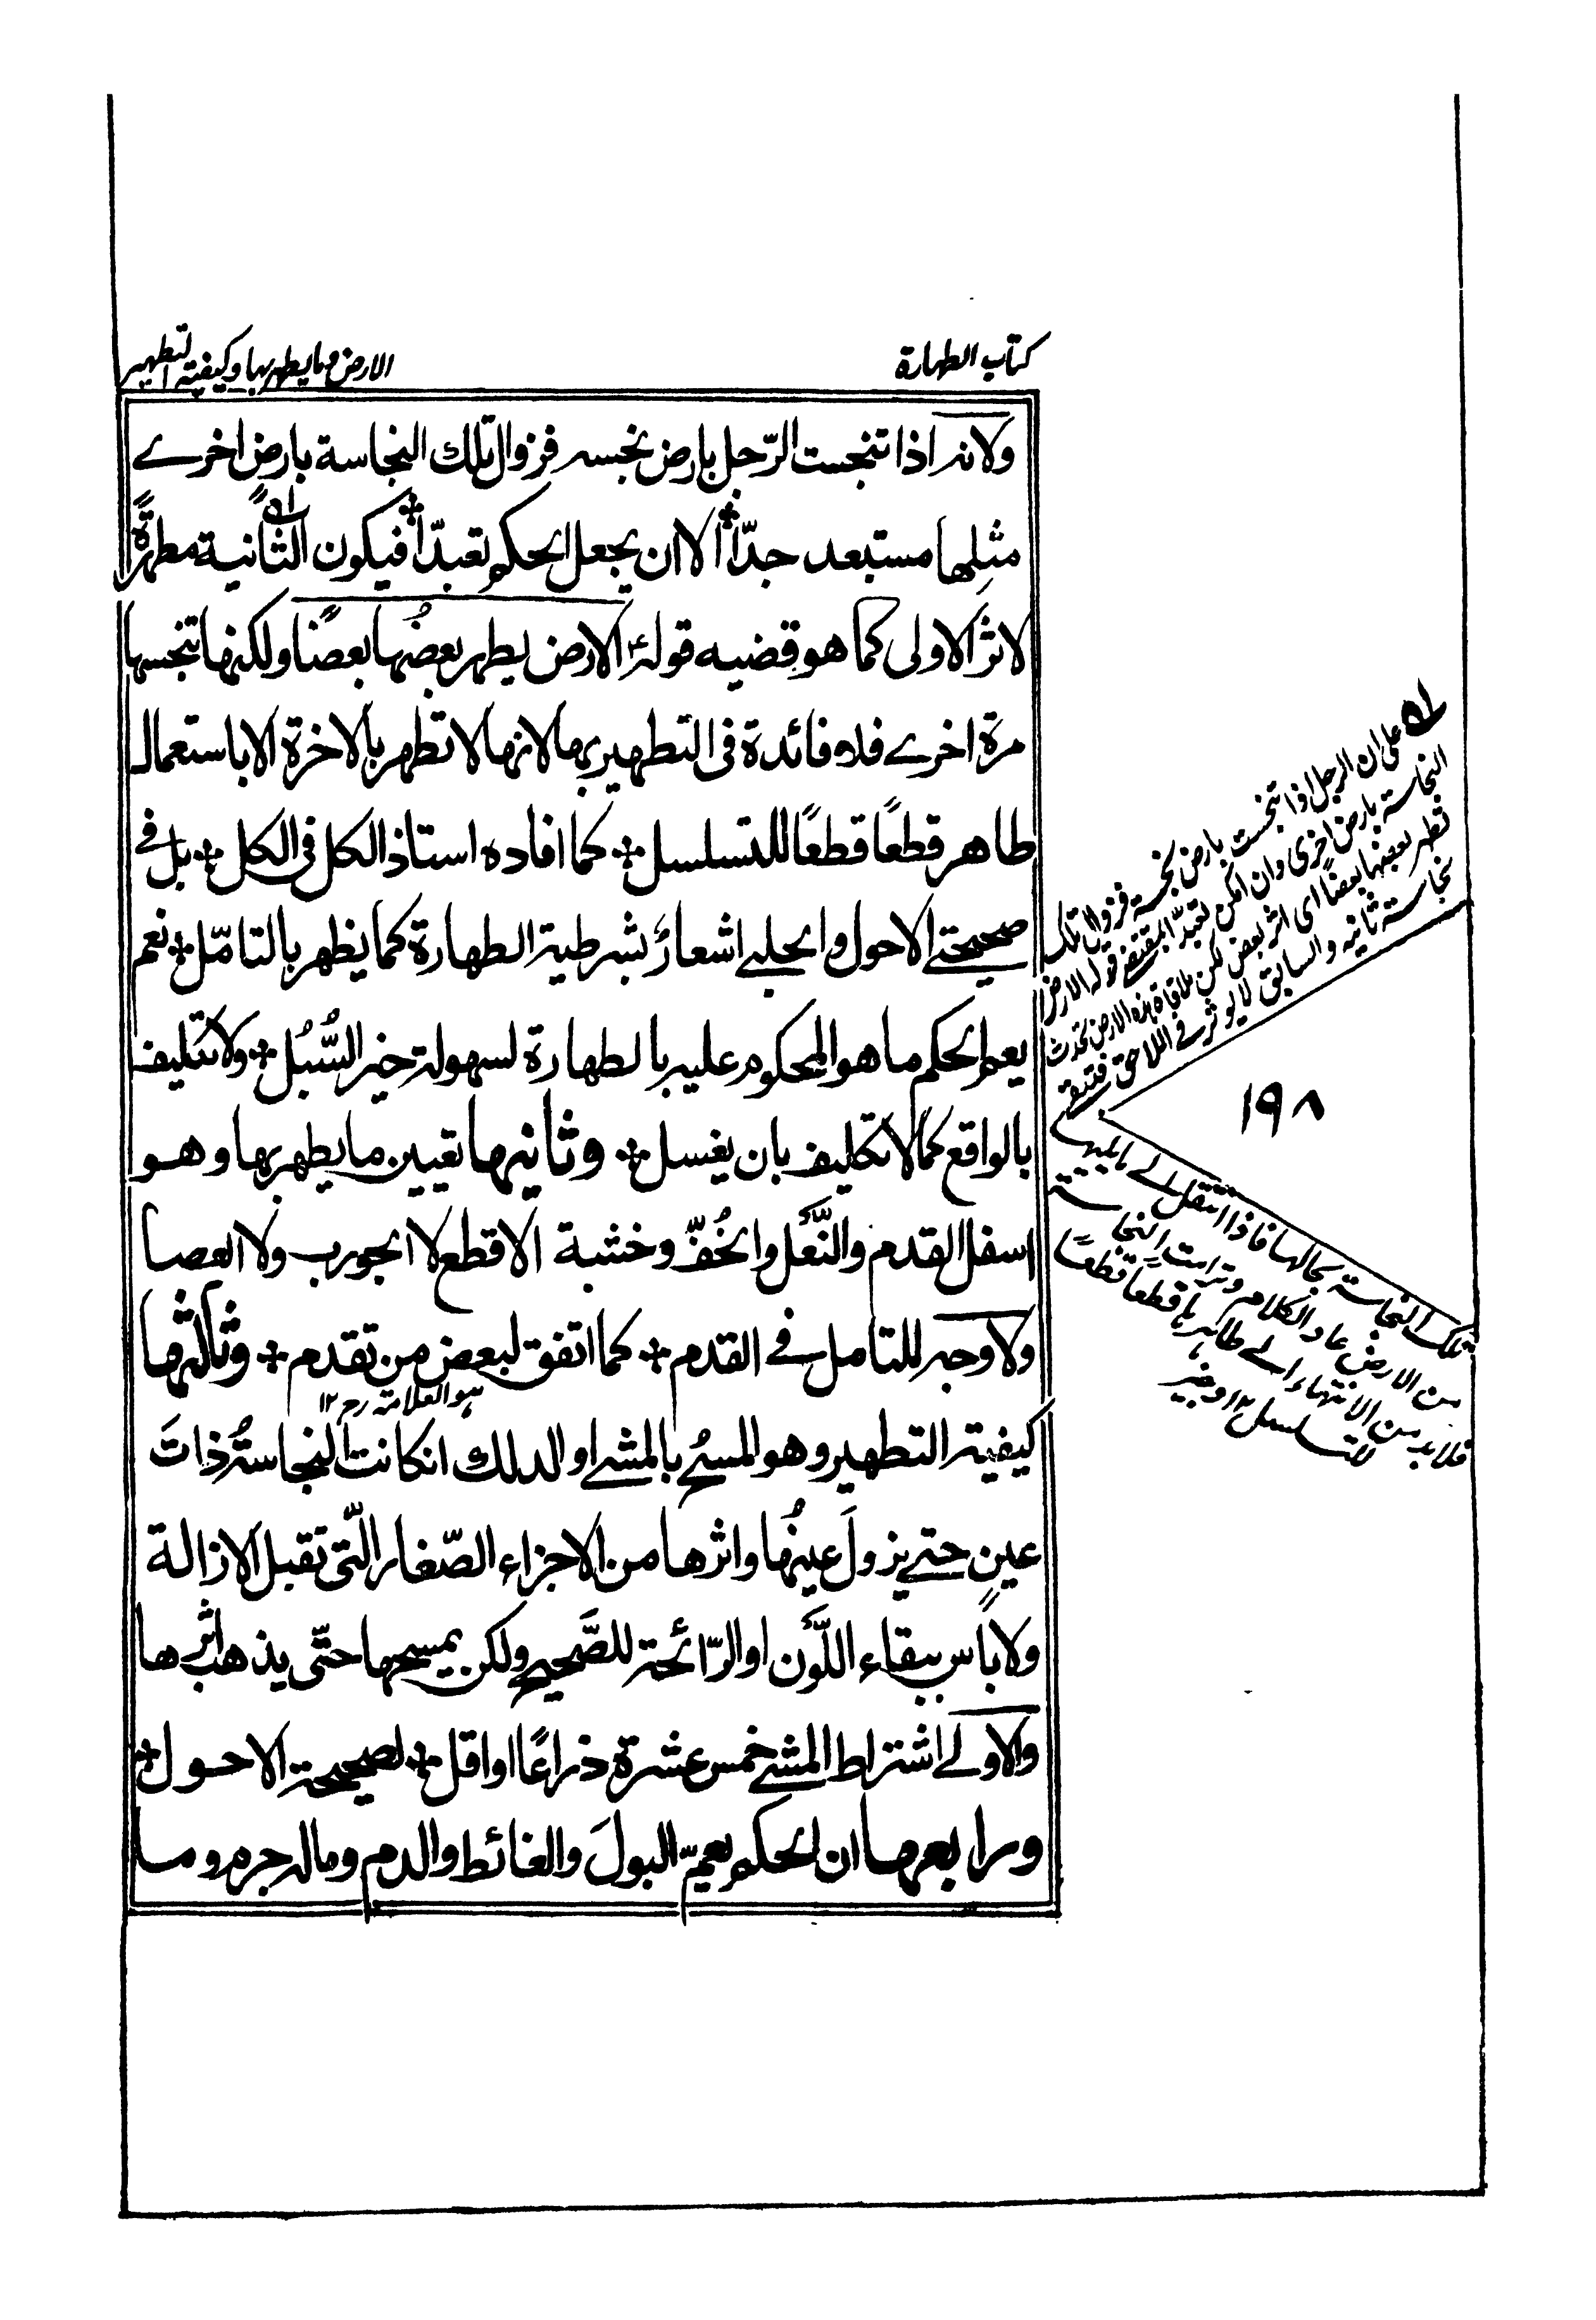 كتاب الطهارة
الارض وما يطهر بها وكيفية التطهير
ولانه اذا تنجست الرّجل بارض نجسه فزوال تلك النجاسة بارض اخرے
مثلها مستبعد جدّاً الا ان يجعل الحكم تعبدّاً فيكون الثانية مطهرةً
لاثر الاولى كما هو قضيه قولهؑ الارض يطهر بعضُها بعضًا ولكنها تنجسها
مرة اخرے فلا فائدة فى التطهير بها لانها لا تطهر بالاخرة الا باستعمال
طاهر قطعًا قطعًا للتسلسل كما افاده استاذ الكل فى الكل بل فے
صحيحتے الاحول والحلبے اشعارٌ بشرطية الطهارة كما يظهر بالتامّل نعم
يعم الحكم ما هو المحكوم عليه بالطهارة لسهولة خير السُّبُل ولا تكليف
بالواقع كما لا تكليف بان يغسل وثانيها تعيين ما يطهر بها وهو
اسفل القدم والنَّعل والخُفّ وخشبة الاقطع لا الجورب ولا العصا
ولا وجه للتامل فے القدم كما اتفق لبعض من تقدم وثالثها
هو العلامة رح ١٢
كيفية التطهير وهو المسحُ بالمشے او الدلك انكانت النجاسةُ ذاتَ
عينٍ حتے يزولَ عينُها واثرها من الاجزاء الصّغار الّتى تقبل الازالة
ولا باس ببقاء اللَّون او الرّائحة للصَّحيح ولكن يمسحها حتّى يذهب اثرها
والاولے اشتراط المشے خمس عشرة ذراعًا او اقل لصحيحة الاحول
ورابعها ان الحكم يعمّ البولَ والغائط والدم وماله جرم وما
على ان الرجل اذا تنجست بارض نجسة فزوال تلك
النجاسة بارض اخرى وان امكن تعبدّ المقتضے قوله الارض
تطهر بعضها بعضاً اى اثر بعض لكن ملاقاة هذه الارض تحدث
نجاسة ثانيه والسابق لا يوثر فے اللاحق فتبقے
١٩٨
تلك النجاسة بحالها فاذا انتقل الے
من الارض عاد الكلام وترامت النجاسة
فلا بد من الانتهاء الے طاهر ما قطعاً قطعاً
للتسلسل ١٢ وخير